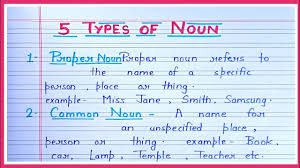 5 TYPES OF NOUN
1- Proper Noun Proper noun refers to
the name of a specific
person, place or thing.
example- Miss Jane, Smith, Samsung.
2- Common Noun - A name for
an unspecified place,
person or thing. example- Book,
car, Lamp, Temple, Teacher etc.